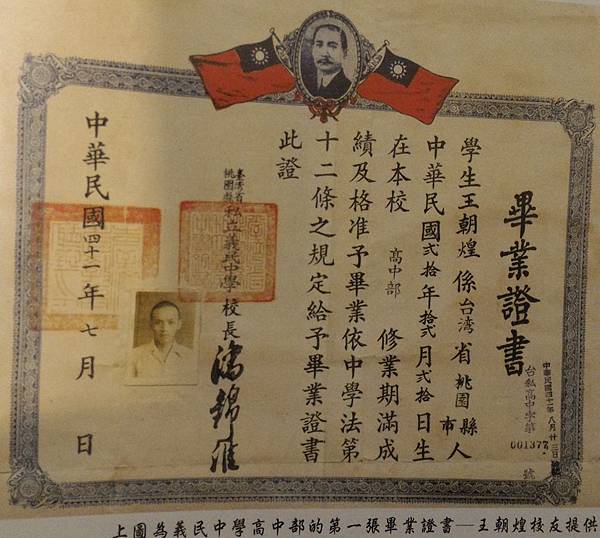 畢業證書
中華民國四十一年八月廿三日
台私高中字第001377號
學生王朝煌係台湾省桃園縣市人
中華民國貳拾年拾貳月貳拾日生
在本校高中部修業期滿成
績及格准予畢業依中學法第
十二條之規定給予畢業證書
此證
臺灣省桃園縣私立義民中學校長潘錦淮
中華民國四十一年七月 日
上圖為義民中學高中部的第一張畢業證書─王朝煌校友提供